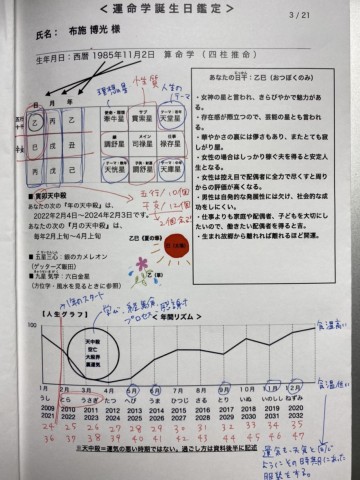 ＜運命学誕生日鑑定＞
3/21
氏名： 布施 博光 様
生年月日：西暦 1985年11月2日 算命学（四柱推命）
日 月 年
乙 丙 乙
丑 戌 丑
性質
人生のテーマ
牽牛星 貫索星 天堂星
調舒星 司禄星 禄存星
天恍星 調舒星 天庫星
あなたの日干：乙日（おつぼくのみ）
・女神の星と言われ、きらびやかで魅力がある。
・存在感が際立つので、芸能の星とも言われる。
・華やかさの裏には儚さもあり、またとても寂しがり屋。
・女性の場合はしっかり稼ぐ夫を得ると安定人生となる。
・女性は控え目で配偶者に全力で尽くすと周りからの評価が高くなる。
・男性は自発的な発展性には欠け、社会的な成功をしにくい。
・仕事よりも家庭や配偶者、子どもを大切にしたいので、働きたい配偶者を得ると吉。
・生まれ故郷から離れれば離れるほど開運。
■ 寅卯天中殺
あなたの次の「年の天中殺」は、
2022年2月4日～2024年2月3日です。
あなたの次の「月の天中殺」は、
毎年2月上旬～4月上旬
■ 五星三心：銀のカメレオン
（ゲッターズ飯田）
■ 九星 気学：六白金星
（方位学・風水を見るときに参照）
乙日（夏の草）
乙（草）
【人生グラフ】
＜年間リズム＞
100
天中殺
空亡
大殺界
裏運気
1月 2月 3月 4月 5月 6月 7月 8月 9月 10月 11月 12月
うし とら うさぎ たつ へび うま ひつじ さる とり いぬ いのしし ねずみ
2009 2010 2011 2012 2013 2014 2015 2016 2017 2018 2019 2020
2021 2022 2023 2024 2025 2026 2027 2028 2029 2030 2031 2032
24 25 26 27 28 29 30 31 32 33 34 35
36 37 38 39 40 41 42 43 44 45 46 47
気温高い
気温低い
※天中殺＝運気の悪い時期ではない。過ごし方は資料後半に記述